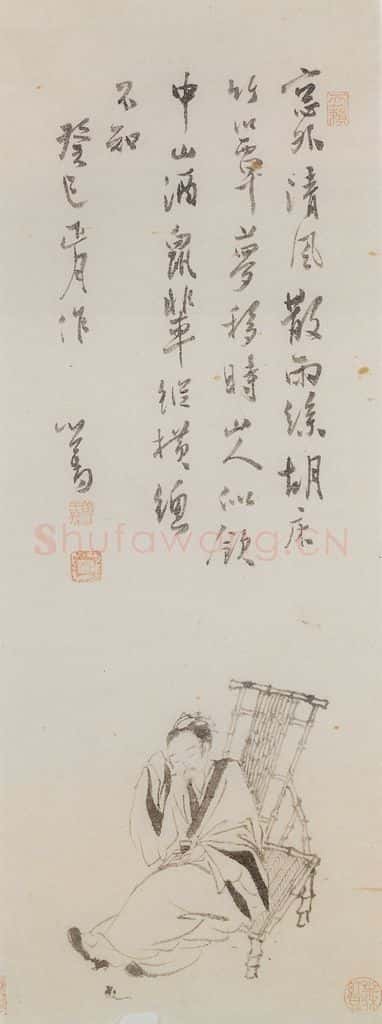 窗外清風散雨絲胡床
竹簟夢移時山人似飲
中山酒鼠輩縱橫總
不知
癸巳正月作
心畬
Shufawang.CN